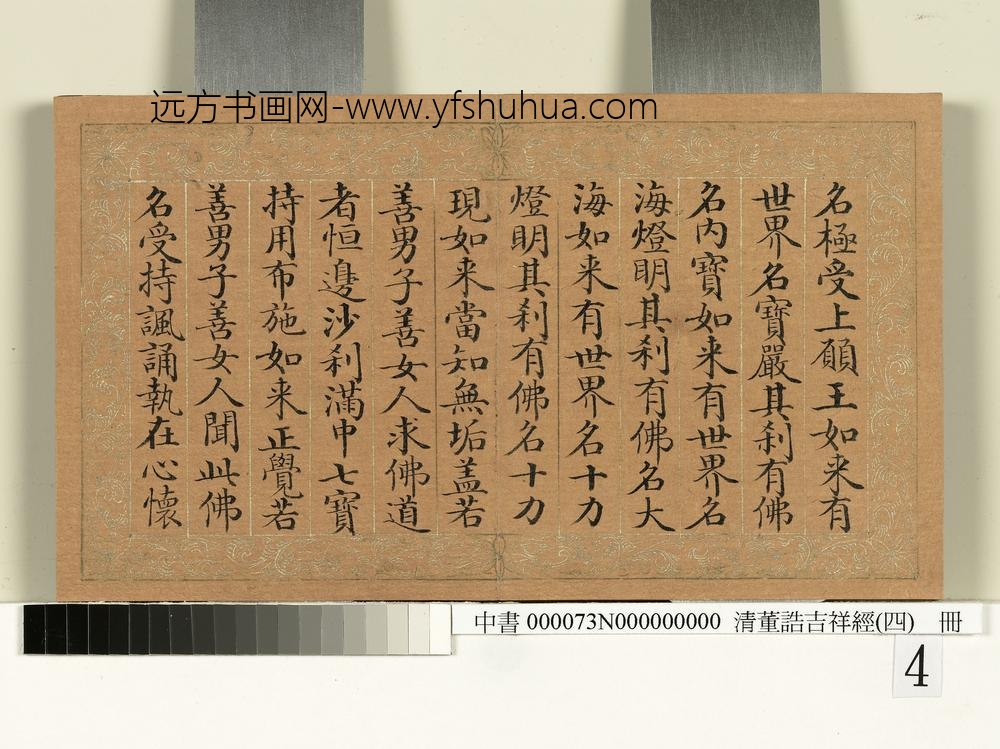 远方书画网-www.yfshuhua.com
名極受上願王如来有
世界名寶嚴其刹有佛
名内寶如来有世界名
海燈明其刹有佛名大
海如来有世界名十力
燈明其刹有佛名十力
現如来當知無垢盖若
善男子善女人求佛道
者恒邊沙刹滿中七寶
持用布施如来正覺若
善男子善女人聞此佛
名受持諷誦執在心懷
中書 000073N000000000 清董誥吉祥經(四) 冊
4